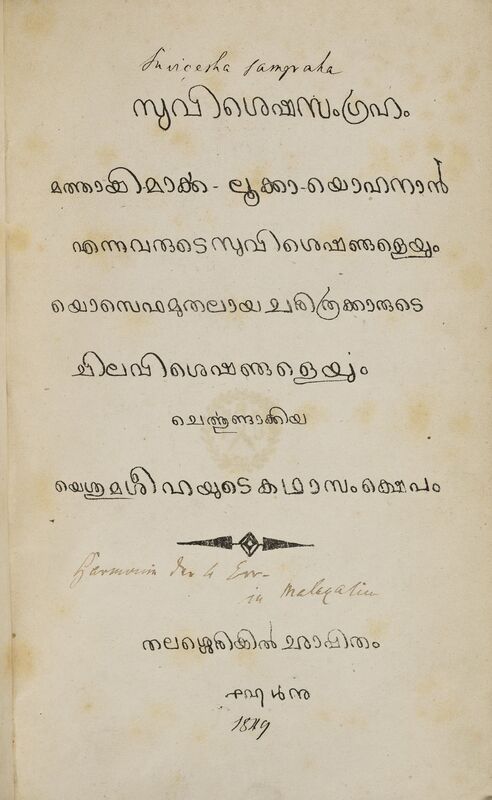 Suvicesha samgraha
സുവിശെഷസംഗ്രഹം
മത്തായി-മാൎക്ക-ലൂക്കാ-യൊഹനാൻ
എന്നവരുടെസുവിശെഷങ്ങളെയും
യൊസെഫമുതലായചരിത്രക്കാരുടെ
ചിലവിശെഷങ്ങളെയും
ചെൎത്തുണ്ടാക്കിയ
യെശുമശീഹയുടെകഥാസംക്ഷെപം
Harmonie der 4 Evv.
in Malayalim
തലശ്ശെരിയിൽഛാപിതം
൧൮൪൯
1849